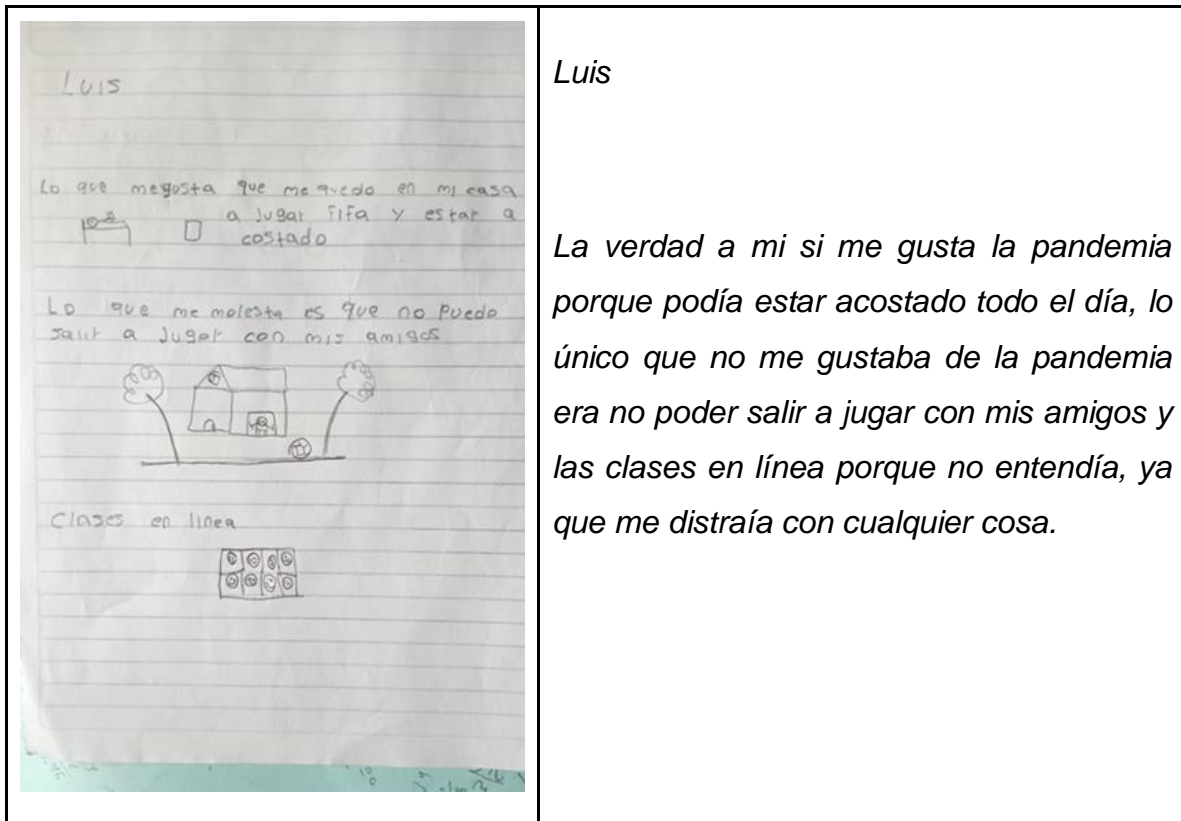 Luis
Lo que megusta que me quedo en mi casa
a Jugar Fifa y estar a
costado
Lo que me molesta es que no puedo
salir a Jugar con mis amigos
Clases en linea
Luis
La verdad a mi si me gusta la pandemia
porque podía estar acostado todo el día, lo
único que no me gustaba de la pandemia
era no poder salir a jugar con mis amigos y
las clases en línea porque no entendía, ya
que me distraía con cualquier cosa.